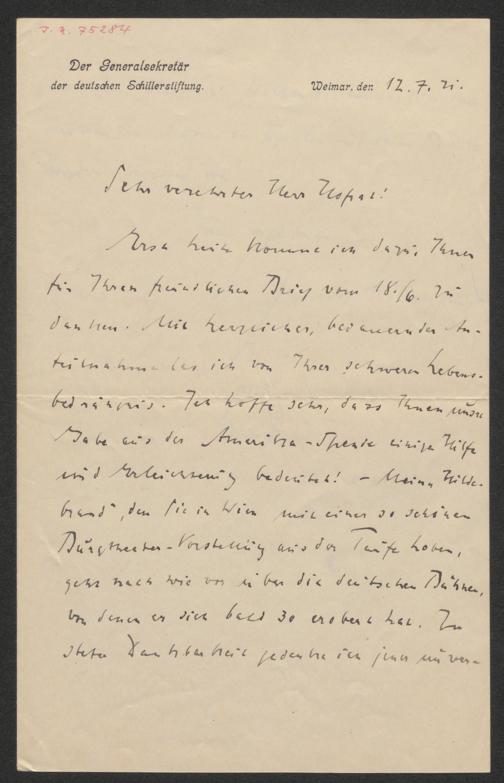 J. N. 75284
Der Generalsekretär
der deutschen Schillerstiftung.
Weimar, den 12. 7. 21.
Sehr verehrter Herr Hofrat!
Erst heute komme ich dazu, Ihnen
für Ihren freundlichen Brief vom 18./6. zu
danken. Mit herzlicher, bedauernder An-
teilnahme las ich von Ihrer schweren Lebens-
bedrängnis. Ich hoffe sehr, dass Ihnen unsre
Gabe aus der Amerika-Spende einige Hilfe
und Erleichterung bedeutet! – Mein „Hilde-
brand“, den Sie in Wien mit einer so schönen
Burgtheater-Vorstellung aus der Taufe hoben,
geht nach wie vor über die deutschen Bühnen,
von denen er sich bald 30 erobert hat. In
steter Dankbarkeit gedenke ich jener unver-